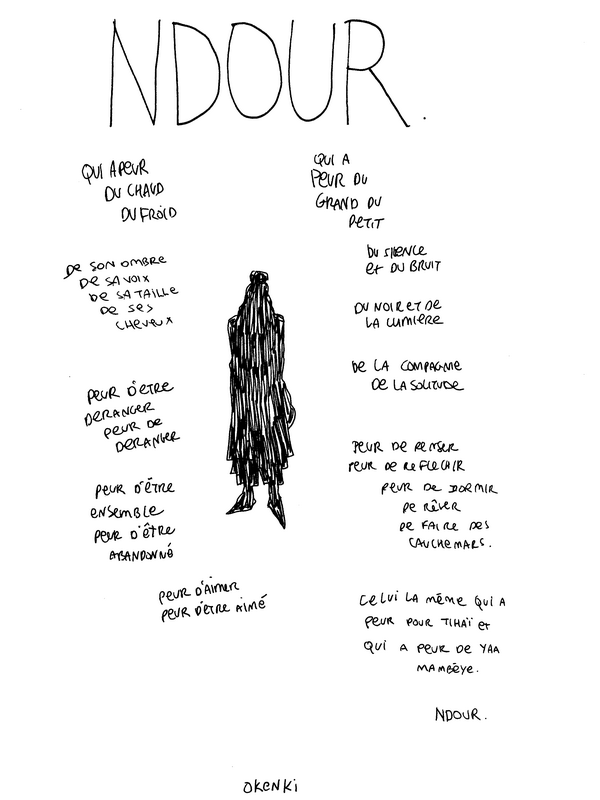 NDOUR.
QUI A PEUR
DU CHAUD
DU FROID
DE SON OMBRE
DE SA VOIX
DE SA TAILLE
DE SES
CHEVEUX
PEUR D'ÊTRE
DERANGER
PEUR DE
DERANGER
PEUR D'ÊTRE
ENSEMBLE
PEUR D'ÊTRE
ABANDONNÉ
PEUR D'AIMER
PEUR D'ETRE AIMÉ
QUI A
PEUR DU
GRAND DU
PETIT
DU SILENCE
ET DU BRUIT
DU NOIR ET DE
LA LUMIÈRE
DE LA COMPAGNIE
DE LA SOLITUDE
PEUR DE PENSER
PEUR DE REFLECHIR
PEUR DE DORMIR
DE RÊVER
DE FAIRE DES
CAUCHEMARS.
CELUI LA MÊME QUI A
PEUR POUR TIHAÏ ET
QUI A PEUR DE YAA
MAMBÉYE.
NDOUR.
OKENKI